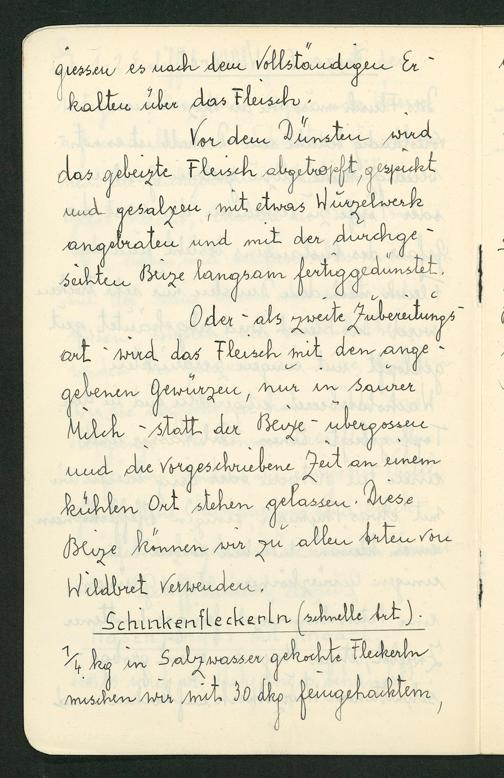 giessen es nach dem Vollständigen Er-
kalten über das Fleisch.
Vor dem Dünsten wird
das gebeizte Fleisch abgetropft, gespickt
und gesalzen, mit etwas Würzelwerk
angebraten und mit der durchge-
seihten Beize langsam fertiggedünstet.
Oder - als zweite Zubereitungs-
art - wird das Fleisch mit den ange-
gebenen Gewürzen, nur in saurer
Milch - statt der Beize - übergossen
und die vorgeschriebene Zeit an einem
kühlen Ort stehen gelassen. Diese
Beize können wir zu allen Arten von
Wildbret Verwenden.
Schinkenfleckerln (schnelle Art).
1/4 kg in Salzwasser gekochte Fleckerln
mischen wir mit 30 dkg feingehacktem,